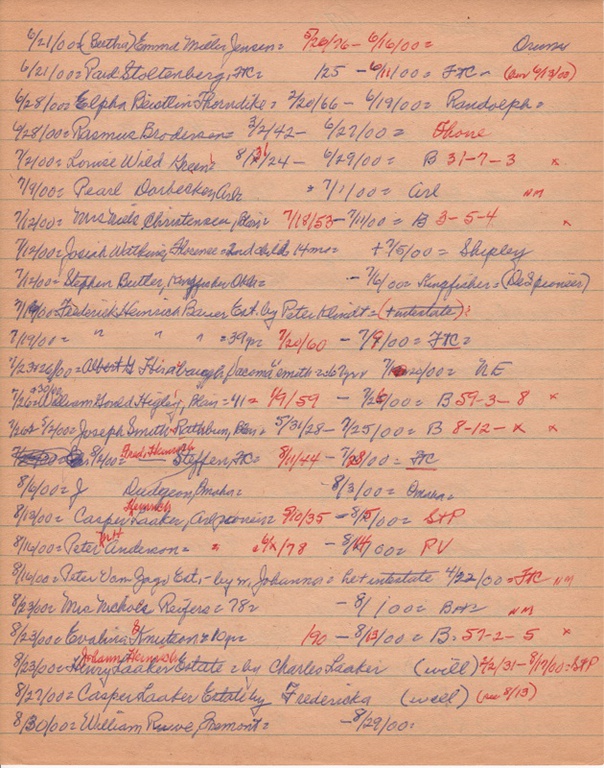 6/21/00=(Bertha) Emma Miller Jensen= 5/26/76- 6/16/00=
6/21/00=Paul Stoltenberg, FC= 125 - 6/11/00= FTC - (Bur 6/13/00)
6/28/00=Elpha Thorndike= 2/20/66- 6/19/00= Randolph=
6/28/00=Rasmus Broderson= 3/2/42- 6/27/00= Phone
7/2/00=Louise Wild Green= 8/31/24- 6/29/00= B 31-7-3 x
7/9/00= Pearl Dorbecker, Arl= = 7/1/00= Arl NM
7/12/00=Mrs Niels Christensen, Blair= 7/18/53-7/11/00= B 3-5-4 x
7/12/00=Josiah Watkins, Florence=2nd child 14 mo= +7/5/00= Shipley
7/12/00=Stephen Butler, Kingfisher Okla= -7/6/00= Kingfisher=(Des pioneer)
7/19/00=Frederick Heinrich Bauer Est. by Peter Klindt=(+intestate)
7/19/00= " " " =39yr 7/20/60 - 7/9/00= FTC=
7/23+26/00= Albert G Hirabaugh, Tacoma NE
7/26=William Gould Higley, Blair=41= 1/9/59 - 7/25/00= B 59-3-8 x
8/2/00=Joseph Smith Rathbun, Blair= 5/31/28- 7/25/00= B 8-12-x x
8/2/00= Fred. Heinrich Steffen, FC= 8/11/44- 7/28/00= FC
8/6/00=J Dudgeon, Omaha= 8/3/00= Omaha=
8/13/00= Casper Heinrich Laaker, Arl pioneer= 5/10/35 -8/5/00= StP
8/16/00=Peter Anderson= /78 -8/14/00= PV
8/16/00=Peter Van Zago Est,-by w, Johanna= he + intestate 4/22/00=FC NM
8/23/00=Mrs Nichols Reifers=78= -8/ /00= NM
8/23/00=Evalina Knutson=10yr 190 - 8/13/00= B=57-2-5 x
8/23/00=Henry Johann Heinrich Laaker Estate=by Charles Laaker (will) 2/2/31-8/17/00=StP
8/27/00=Casper Laaker Estate by Fredericka (will) (see 8/13)
8/30/00=William Ruwe, Fremont= -8/29/00=